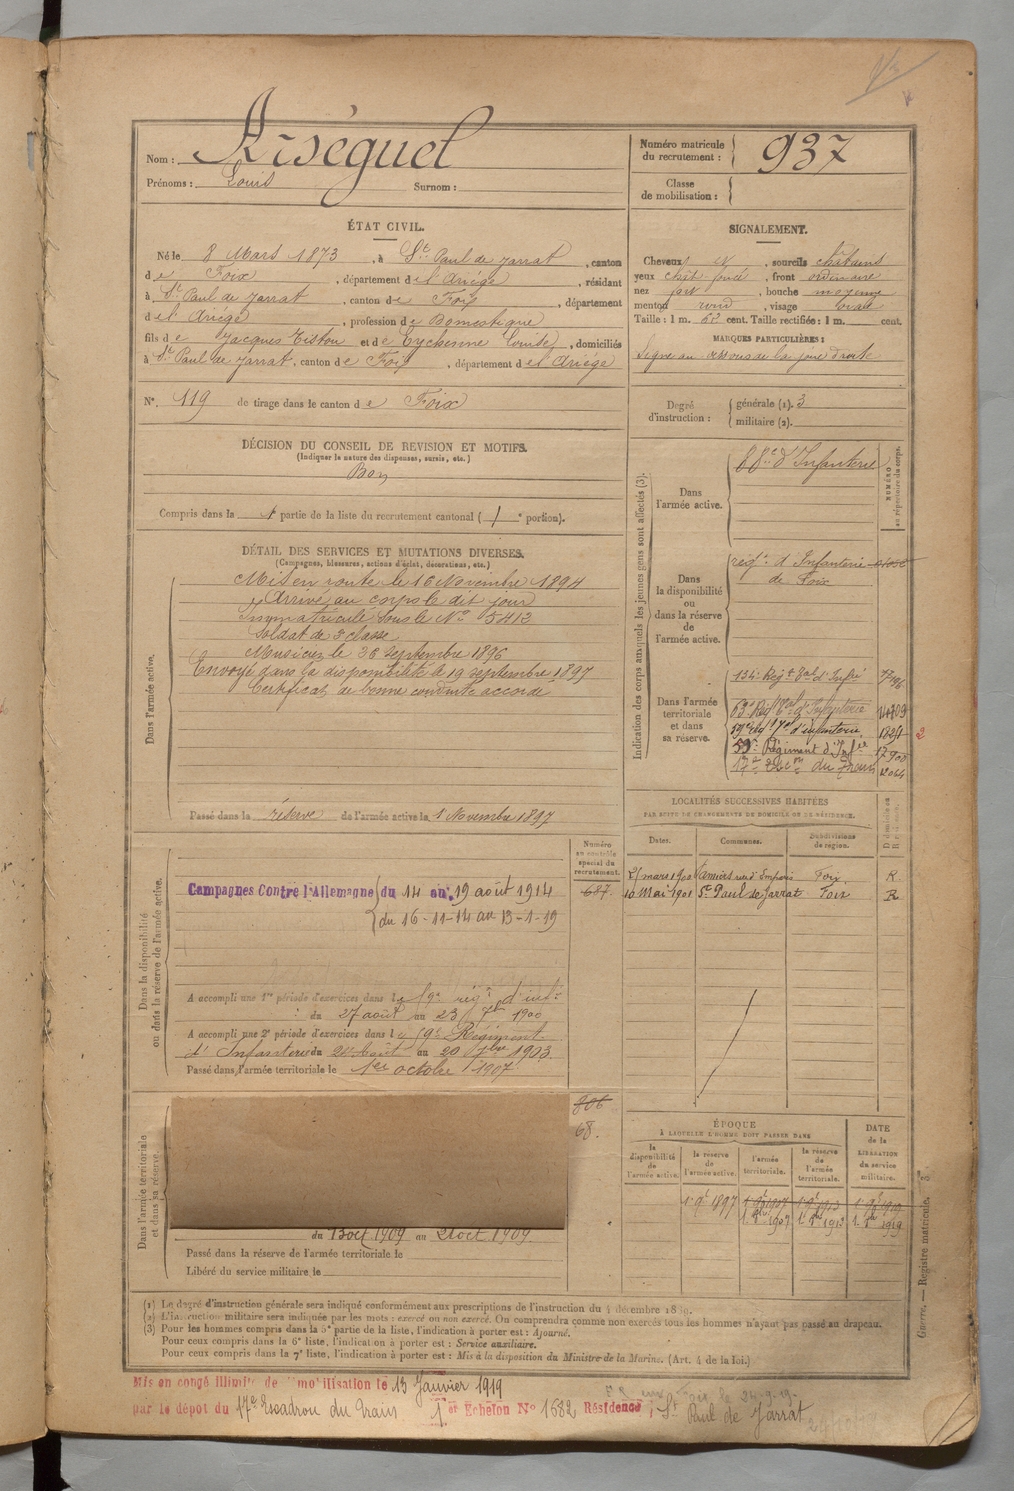 Nom : Arséguel
Prénoms : Louis Surnom :
Numéro matricule du recrutement : 937
Classe de mobilisation :
ÉTAT CIVIL.
Né le 8 Mars 1873, à St Paul de Jarrat, canton
de Foix, département de l'Ariège, résidant
à St Paul de Jarrat, canton de Foix, département
de l'Ariège, profession de Domestique
fils de Jacques Tistou et de Eychenne Louise, domiciliés
à St Paul de Jarrat, canton de Foix, département de l'Ariège
N°. 119 de tirage dans le canton de Foix
SIGNALEMENT.
Cheveux et, sourcils châtains
yeux chât. foncé, front ordinaire
nez fort, bouche moyenne
menton rond, visage ovale
Taille : 1 m. cent. Taille rectifiée : 1 m. cent.
MARQUES PARTICULIÈRES :
Signe au dessous de la joue droite
Degré d'instruction : générale (1). 3
militaire (2).
DÉCISION DU CONSEIL DE REVISION ET MOTIFS.
(Indiquer la nature des dispenses, sursis, etc.)
Bon
Compris dans la 1 partie de la liste du recrutement cantonal ( 1 e portion).
DÉTAIL DES SERVICES ET MUTATIONS DIVERSES.
(Campagnes, blessures, actions d'éclat, décorations, etc.)
Dans l'armée active.
Mis en route le 16 Novembre 1894
Arrivé au corps le dit jour
Immatriculé sous le No 5412
Soldat de 2e classe
Musicien le 26 Septembre 1896
Envoyé dans la disponibilité le 19 septembre 1897
Certificat de bonne conduite accordé
Passé dans la réserve de l'armée active le 1 Novembre 1897
Indication des corps auxquels les jeunes gens sont affectés (3).
NUMÉRO au répertoire du corps.
Dans l'armée active.
88e d'Infanterie
Dans la disponibilité ou dans la réserve de l'armée active.
régt d'Infanterie
de Foix
Dans l'armée territoriale et dans sa réserve.
134e Régt tal d'Infie
d'Infanterie
d'infanterie 1824
59e Régiment d'Infie
du Train
LOCALITÉS SUCCESSIVES HABITÉES
PAR SUITE DE CHANGEMENTS DE DOMICILE OU DE RÉSIDENCE.
Dates. Communes. Subdivisions de région. D domicile ou R résidence.
mars 1900 Pamiers Foix R
10 Mai 1901 St Paul de Jarrat Foix R
Dans la disponibilité ou dans la réserve de l'armée active.
Numéro au contrôle spécial du recrutement.
687
Campagnes Contre l'Allemagne du 14 au 19 août 1914
du 16-11-14 au 13-1-19
A accompli une 1re période d'exercices dans le 59e régt d'infie
du 27 août au 23 7bre 1900
A accompli une 2e période d'exercices dans le 59e Régiment
d'Infanterie du 24 Août au 20 7bre 1903
Passé dans l'armée territoriale le 1er octobre 1907
Dans l'armée territoriale et dans sa réserve.
806
68.
du 13 oct 1909 au 21 oct 1909
Passé dans la réserve de l'armée territoriale le
Libéré du service militaire le
ÉPOQUE
À LAQUELLE L'HOMME DOIT PASSER DANS
DATE de la LIBÉRATION du service militaire.
la disponibilité de l'armée active. la réserve de l'armée active. l'armée territoriale. la réserve de l'armée territoriale.
1 9bre 1897 1 9bre 1907 1 9bre 1913 1 9bre 1919
1 8bre 1907 1 8bre 1913 1 8bre 1919
Guerre. — Registre matricule. — 3e
(1) Le degré d'instruction générale sera indiqué conformément aux prescriptions de l'instruction du 4 décembre 1889.
(2) L'instruction militaire sera indiquée par les mots : exercé ou non exercé. On comprendra comme non exercés tous les hommes n'ayant pas passé au drapeau.
(3) Pour les hommes compris dans la 5e partie de la liste, l'indication à porter est : Ajourné.
Pour ceux compris dans la 6e liste, l'indication à porter est : Service auxiliaire.
Pour ceux compris dans la 7e liste, l'indication à porter est : Mis à la disposition du Ministre de la Marine. (Art. 4 de la loi.)
Mis en congé illimité de mobilisation le 13 Janvier 1919
par le dépot du 17e Escadron du Train 1er Echelon No 1682 Résidence : St Paul de Jarrat